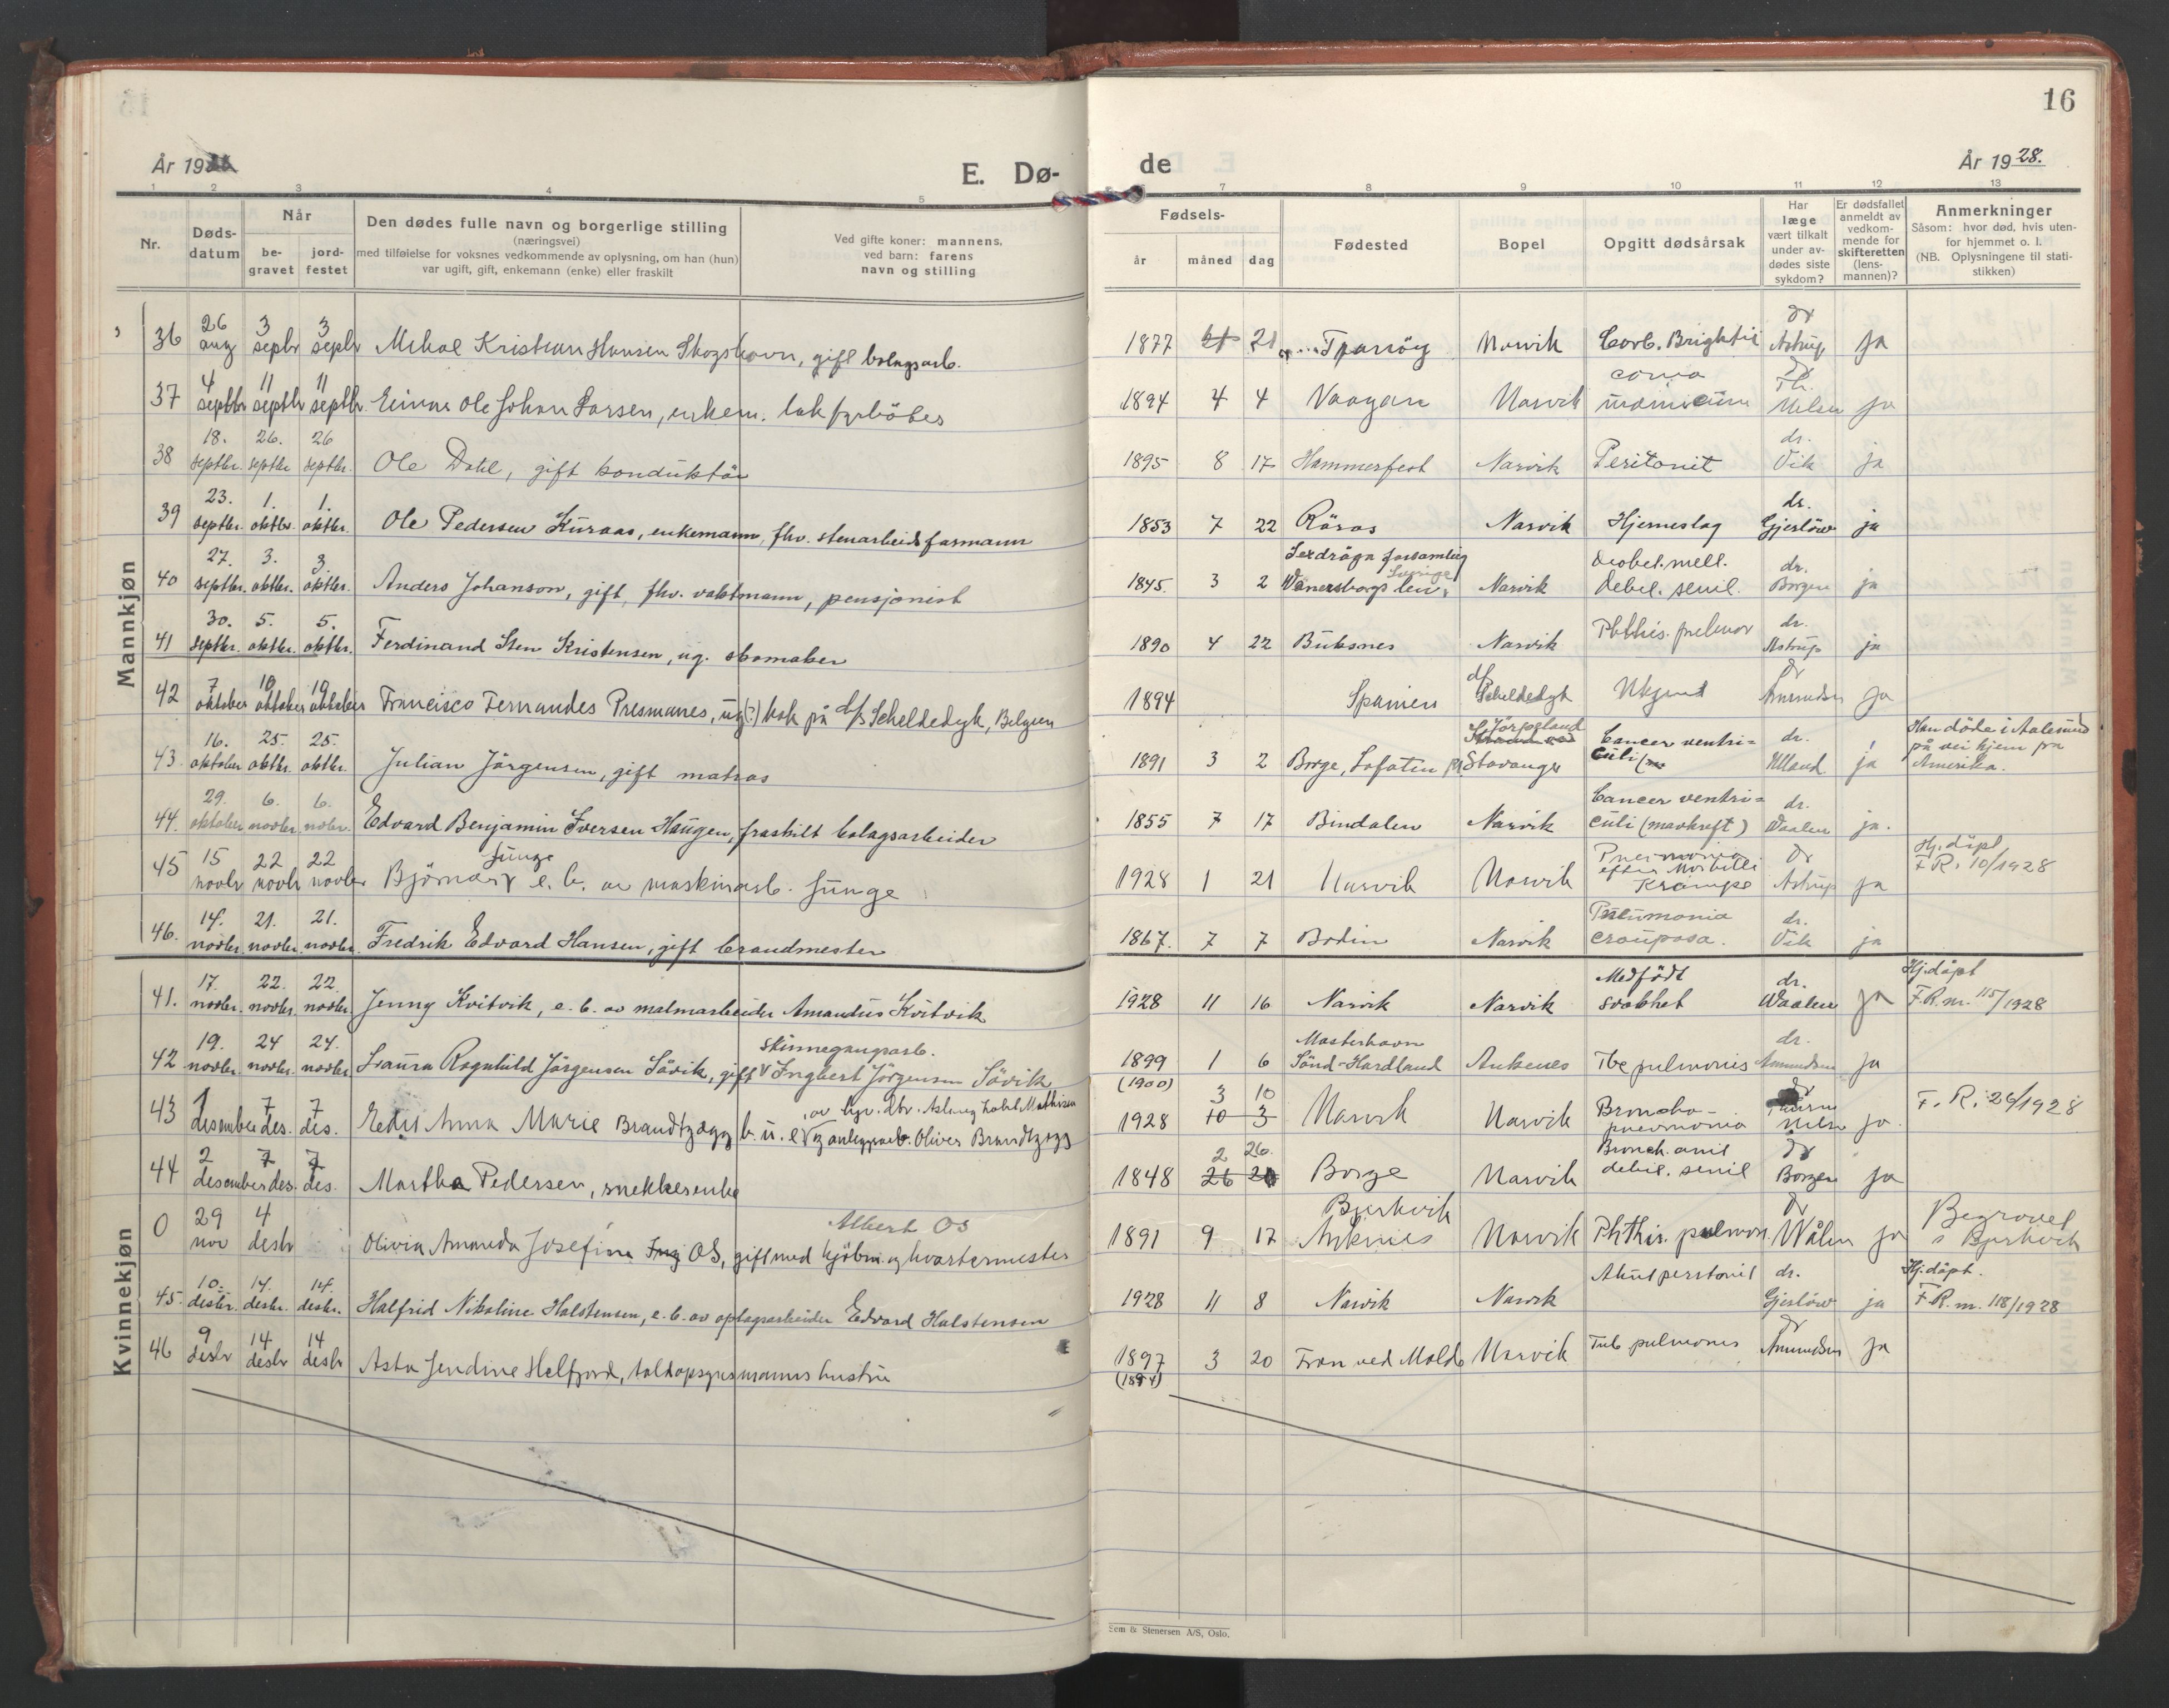 16
År 19
E. Dø- de
År 1928.
1 2 3 4 5 7 8 9 10 11 12 13
Nr.
Døds-
datum
Når
be-
gravet
jord-
festet
Den dødes fulle navn og borgerlige stilling
(næringsvei)
med tilføielse for voksnes vedkommende av oplysning, om han (hun)
var ugift, gift, enkemann (enke) eller fraskilt
Ved gifte koner: mannens,
ved barn: farens
navn og stilling
Fødsels-
år måned dag
Fødested
Bopel
Opgitt dødsårsak
Har
læge
vært tilkalt
under av-
dødes siste
sykdom?
Er dødsfallet
anmeldt av
vedkom-
mende for
skifteretten
(lens-
mannen)?
Anmerkninger
Såsom: hvor død, hvis uten-
for hjemmet o. l.
(NB. Oplysningene til stati-
stikken)
Mannkjøn
36 26 aug 3 septr 3 septr Mikal Kristian Hansen Skogshavn, gift bolagsarb. 1877 21 Narvik Brightii dr Astrup ja
37 4 septbr 11 septbr 11 septbr Einar Ole Johan Larsen, enkem. lok fyrböter 1894 4 4 Vaagan Narvik coma dr Th. Nilsen ja
38 18. septbr. 26. septbr 26 septbr. Ole Dahl, gift konduktör 1895 8 17 Hammerfest Narvik Peritonit dr. Vik ja
39 23. septbr. 1. oktbr. 1. oktbr. Ole Pedersen Kuraas, enkemann, fhv. stenarbeidsformann 1853 7 22 Röros Narvik Hjerneslag dr. Gjerlöw ja
40 27. septbr. 3. oktbr. 3. oktbr. Anders Johanson, gift, fhv. vaktmann, pensjonist 1845. 3 2 forsamling Wenersborgs len, Sverige Narvik debil. senil. dr. Borgen ja
41 30. septbr. 5. oktbr. 5. oktbr. Ferdinand Sten Kristensen, ug. skomaker 1890 4 22 Buksnes Narvik Phthis. pulmon dr. Astrup ja
42 7 oktober 19 oktober 19 oktober Francisco Fernandes Presmanes, ug(?) kok på d/s Scheldedyk, Belgien 1894 Spanien d/s Scheldedyk Ukjent dr Amundsen ja
43. 16. oktober 25. oktbr. 25. oktbr. Julian Jörgensen, gift matros 1891 3 2 Borge, Lofoten Jörpeland Stavanger Cancer ventri- culi dr. Ulland ja Han döde i Aalesund
på vei hjem fra
Amerika.
44. 29. oktober 6. novbr. 6. novbr. Edvard Benjamin Iversen Haugen, fraskilt bolagsarbeider 1855 7 17 Bindalen Narvik Cancer ventri= culi (mavkreft) dr. Waalen ja.
45 15 novbr 22 novbr 22 novbr Björnar Junge e. b. av maskinarb. Junge 1928 1 21 Narvik Narvik Pneumonia efter Morbilli Krampe dr Astrup ja Hj. döpt
F.R. 10/1928
46. 14. novbr. 21. novbr. 21. novbr. Fredrik Edvard Hansen, gift brandmester 1867. 7 7 Bodin Narvik Pneumonia crouposa. dr. Vik ja
Kvinnekjøn
41. 17. novbr. 22. novbr. 22. novbr. Jenny Kvitvik, e. b. av malmarbeider Amandus Kvitvik 1928 11 16 Narvik Narvik Medfödt svakhet dr. Waalen ja Hj.döpt
F.R. nr. 115/1928
42 19. novbr. 24 novbr. 24. novbr. Laura Ragnhild Jörgensen Sövik, gift v skinnegangsarb. Ingbert Jörgensen Sövik 1899 (1900) 1 6 Masterhavn Ankenes Tbc pulmonis dr. Amundsen ja
43 1 desember 7 des. 7 des. Anna Marie Brandtzægg b. u. e anleggsarb. Oliver Brandtzegg 1928 3 10 10 3 Narvik Narvik Broncho- pneumonia dr Nilsen ja F. R. 26/1928
44 2 desember 7 des. 7 des. Martha Pedersen, snekkerenke 1848 2 26. 26 Borge Narvik Bronch. debil. senil dr Borgen ja
0 29 nov 4 desbr Olivia Amanda Josefine OS, gift med kjöbm. og kvartermester Albert OS 1891 9 17 Bjerkvik Ankenes Narvik Phthis. pulmon. dr Wålen ja Begravet
i Bjerkvik
45. 10. desbr. 14. desbr. 14. desbr. Halfrid Nikoline Halstensen, e. b. av oplagsarbeider Edvard Halstensen 1928 11 8 Narvik Narvik Akut peritonit dr. Gjerlöw ja Hj.döpt.
F.R. nr. 118/1928
46 9 desbr 14 desbr 14 desbr Asta Jendine Helfjord, toldopsynsmanns hustru 1897 (1894) 3 20 Fron ved Molde Narvik Tub pulmonis dr Amundsen ja
Sem & Stenersen A/S, Oslo.